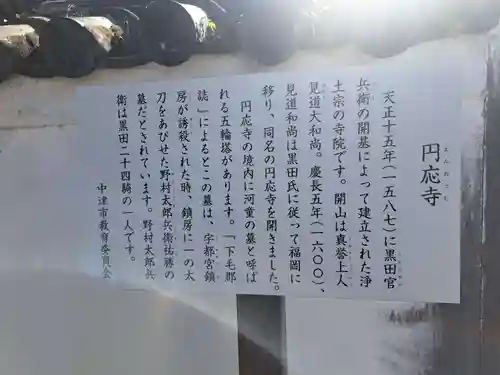 円応寺
えんのうじ
天正十五年(一五八七)に黒田官
兵衛の開基によって建立された浄
土宗の寺院です。開山は真誉上人
見道大和尚。慶長五年(一六〇〇)、
見道和尚は黒田氏に従って福岡に
移り、同名の円応寺を開きました。
円応寺の境内に河童の墓と呼ば
れる五輪塔があります。「下毛郡
誌」によるとこの墓は、宇都宮鎮
房が誘殺された時、鎮房に一の太
刀をあびせた野村太郎兵衛祐勝の
墓だとされています。野村太郎兵
衛は黒田二十四騎の一人です。
中津市教育委員会